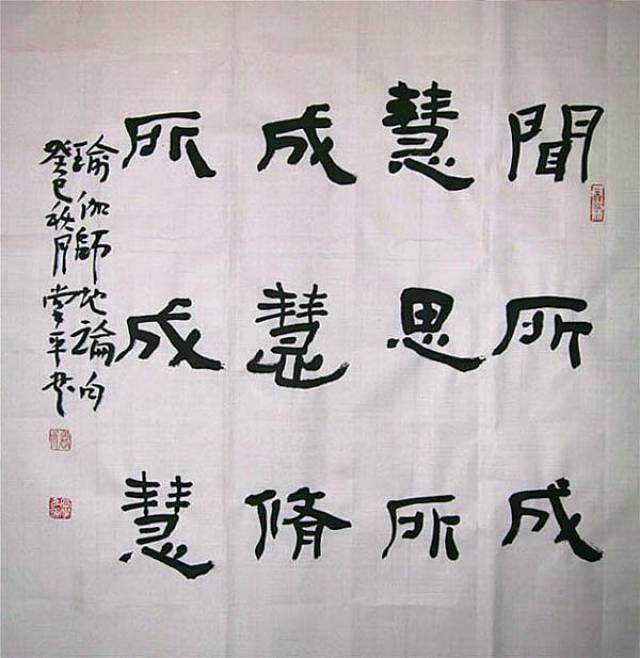 聞所成
慧思所
成慧脩
所成慧
瑜伽師地論句
癸巳秋月常平书